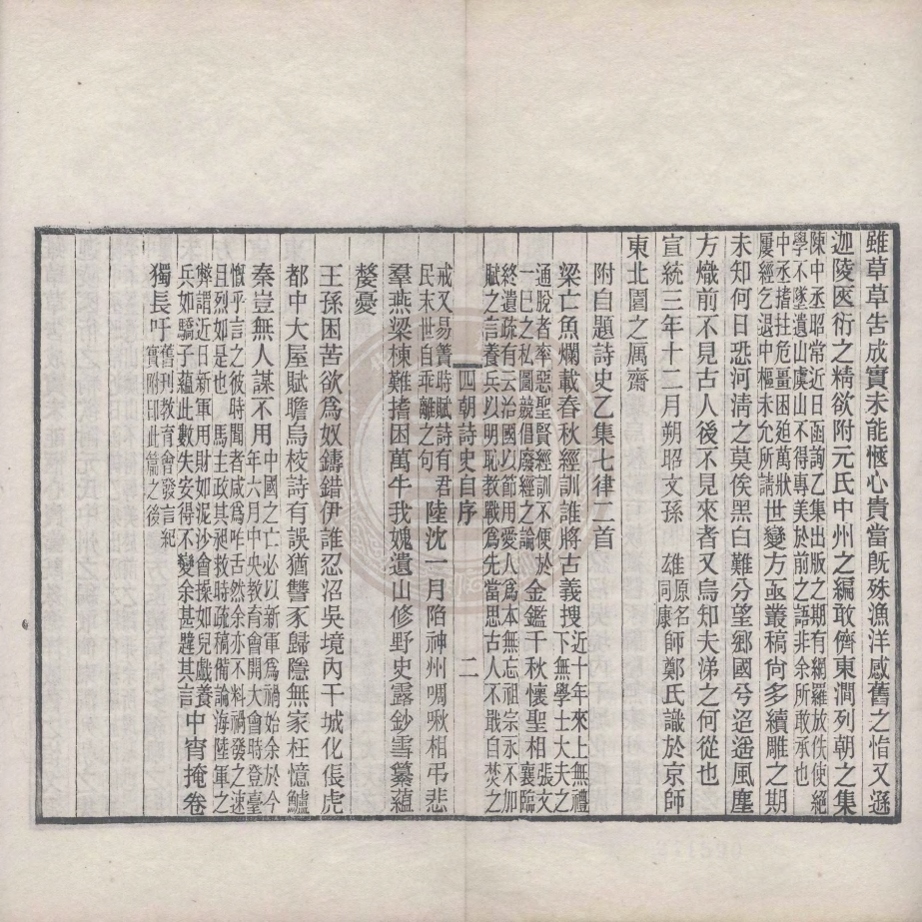 雖草草告成實未能愜心貴當旣殊漁洋感舊之恉又遜
迦陵篋衍之精欲附元氏中州之編敢儕東澗列朝之集
陳中丞昭常近日函詢乙集出版之期有網羅放佚使絕
學不墜遺山虞山不得專美於前之語非余所敢承也
中丞揩拄危畺困廹萬狀
屢經乞退中樞未允所請
世變方亟叢稿尙多續雕之期
未知何日恐河清之莫俟黑白難分望鄉國兮迢遥風塵
方熾前不見古人後不見來者又烏知夫涕之何從也
宣統三年十二月朔昭文孫 雄
原名
同康
師鄭氏識於京師
東北園之厲齋
附自題詩史乙集七律二首
梁亡魚爛載春秋經訓誰將古義搜
近十年來上無禮
下無學士大夫之
通脫者率惡聖賢經訓不便於
一已之私圖競倡廢經之論
金鑑千秋懷聖相
張文
襄臨
終遺疏有云治國以節用愛人爲本無忘祖宗永不加
賦之言養兵以明恥教戰爲先當思古人不戢自焚之
四朝詩史自序
二
戒又易簀時賦詩有君
民末世自乖離之句
陸沈一月陷神州啁啾相弔悲
羣燕梁棟難搘困萬牛我媿遺山修野史露鈔雪纂蘊
嫠憂
王孫困苦欲爲奴鑄錯伊誰忍沼吳境內干城化倀虎
都中大屋賦瞻烏校詩有誤猶讐豕歸隱無家枉憶鱸
秦豈無人謀不用
中國之亡必以新軍爲禍始余於今
年六月中央教育會開大會時登臺
慨乎言之彼時聞者咸爲咋舌然余亦不料禍發之速
且烈如是也 馬主政其昶救時疏稿備論海陸軍之
弊謂近日新軍用財如泥沙會操如兒戲養
兵如驕子蘊此數失安得不變余甚韙其言
中宵掩卷
獨長吁
舊刊教育會發言紀
實附印此篇之後